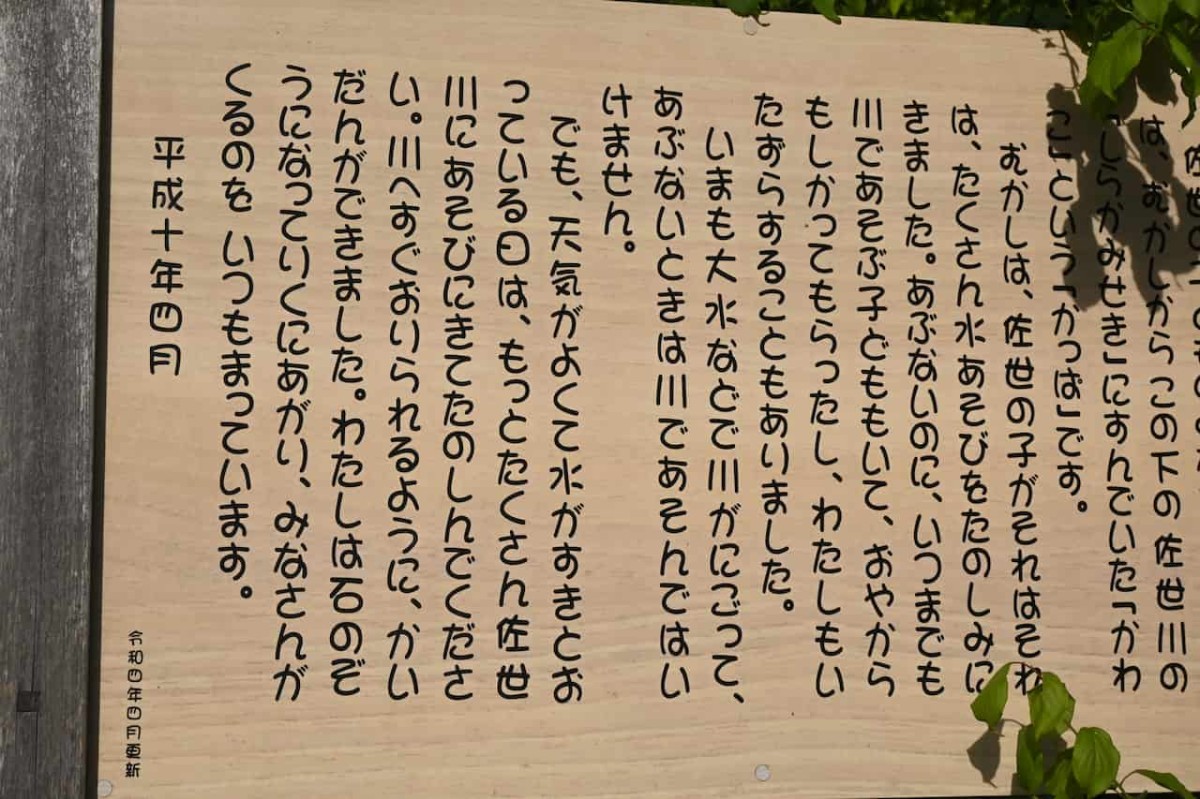 は、むかしからこの下の佐世川の
「しらかみせき」にすんでいた「かわ
こ」という「かっぱ」です。
むかしは、佐世の子がそれはそれ
は、たくさん水あそびをたのしみに
きました。あぶないのに、いつまでも
川であそぶ子どももいて、おやから
もしかってもらったし、わたしもい
たずらすることもありました。
いまも大水などで川がにごって、
あぶないときは川であそんではい
けません。
でも、天気がよくて水がすきとお
っている日は、もっとたくさん佐世
川にあそびにきてたのしんでくださ
い。川へすぐおりられるように、かい
だんができました。わたしは石のぞ
うになってりくにあがり、みなさんが
くるのを いつもまっています。
平成十年四月
令和四年四月更新